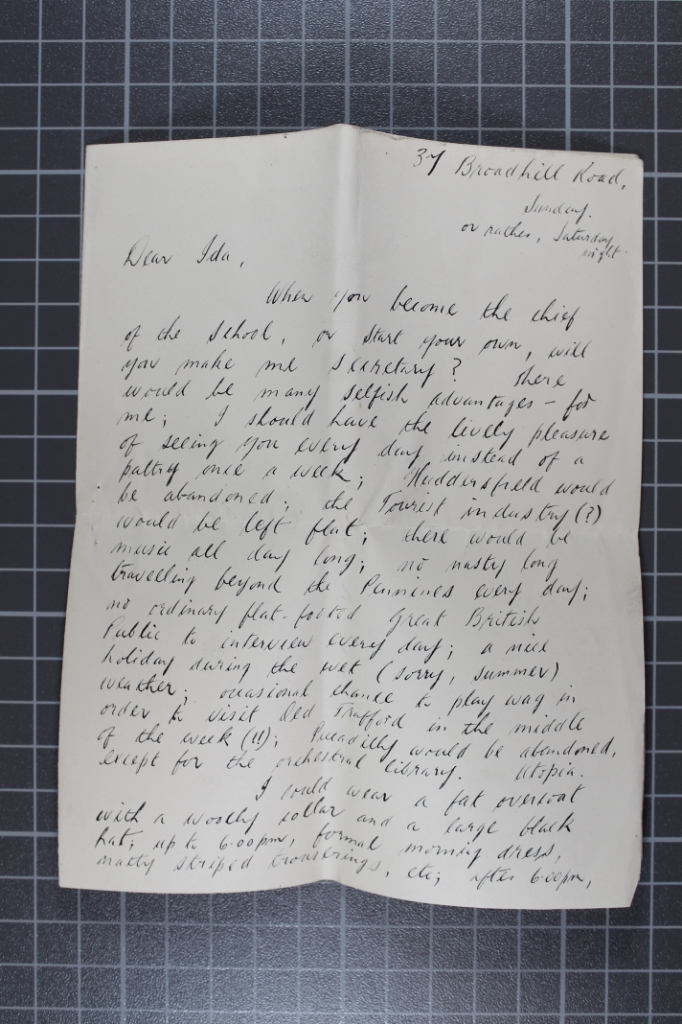 37 Broadhill Road,
Sunday.
or rather, Saturday
night.
Dear Ida,
When you become the chief
of the school, or start your own, will
you make me secretary? There
would be many selfish advantages - for
me; I should have the lively pleasure
of seeing you every day instead of a
paltry once a week; Huddersfield would
be abandoned; the Tourist industry (?)
would be left flat; there would be
music all day long; no nasty long
travelling beyond the Pennines every day;
no ordinary flat-footed Great British
Public to interview every day; a nice
holiday during the wet (sorry, summer)
weather; occasional chance to play wag in
order to visit Old Trafford in the middle
of the week (!!); Piccadilly would be abandoned,
except for the orchestral library. Utopia.
I could wear a fat overcoat
with a woolly collar and a large black
hat; up to 6.00pm, formal morning dress,
natty striped trouserings, etc; after 6.00pm,